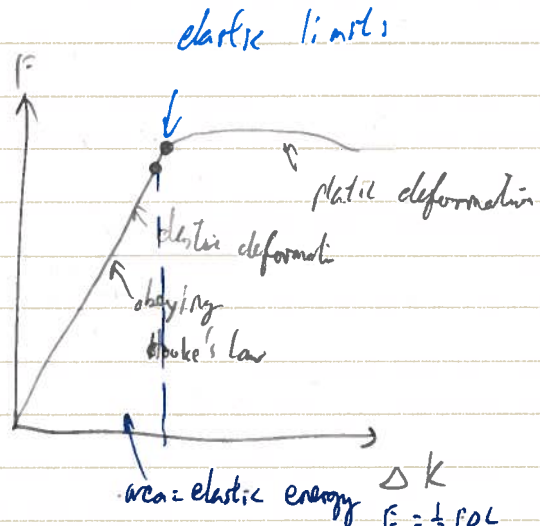 elastic limits
F
platic deformation
elastic deformati
obeying
Hooke's law
Δ K
area = elastic energy